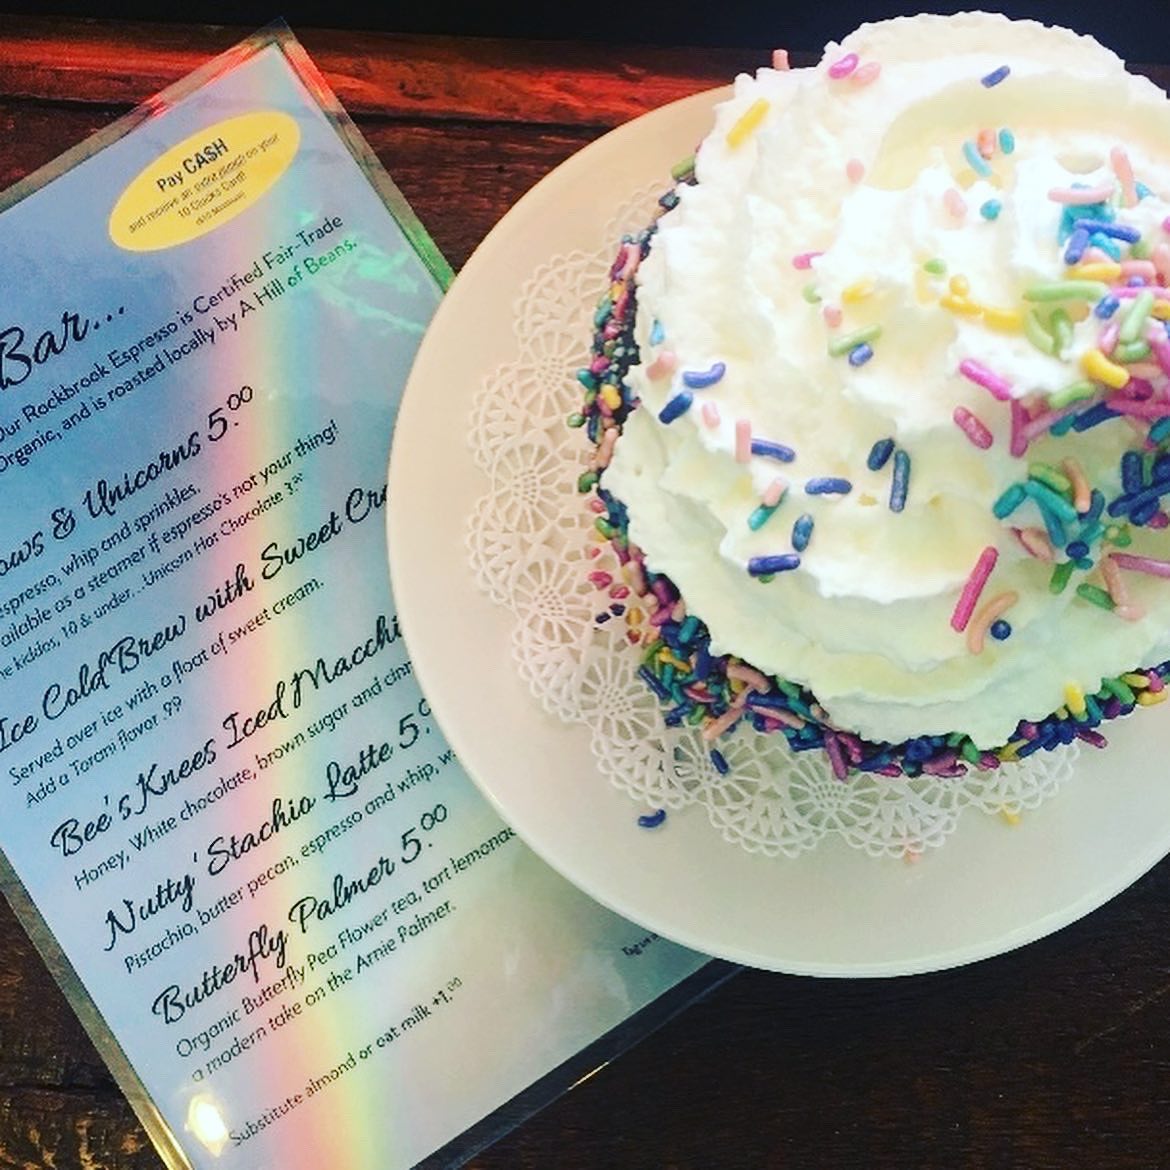 Pay CASH
and receive an extra punch on your
10 Clucks Card!
Bar...
Our Rockbrock Espresso is Certified Fair-Trade
Organic, and is roasted locally by A Hill of Beans.
ows & Unicorns 5.00
espresso, whip and sprinkles.
ailable as a steamer if espresso's not your thing!
he kiddos, 10 & under...Unicorn Hot Chocolate 3.00
Ice Cold Brew with Sweet Cre
Served over ice with a float of sweet cream.
Add a Torani flavor .99
Bee's Knees Iced Macchi
Honey, White chocolate, brown sugar and cinn
Nutty 'Stachio Latte 5.0
Pistachio, butter pecan, espresso and whip, w
Butterfly Palmer 5.00
Organic Butterfly Pea Flower tea, tart lemonad
a modern take on the Arnie Palmer.
Substitute almond or oat milk +1.00